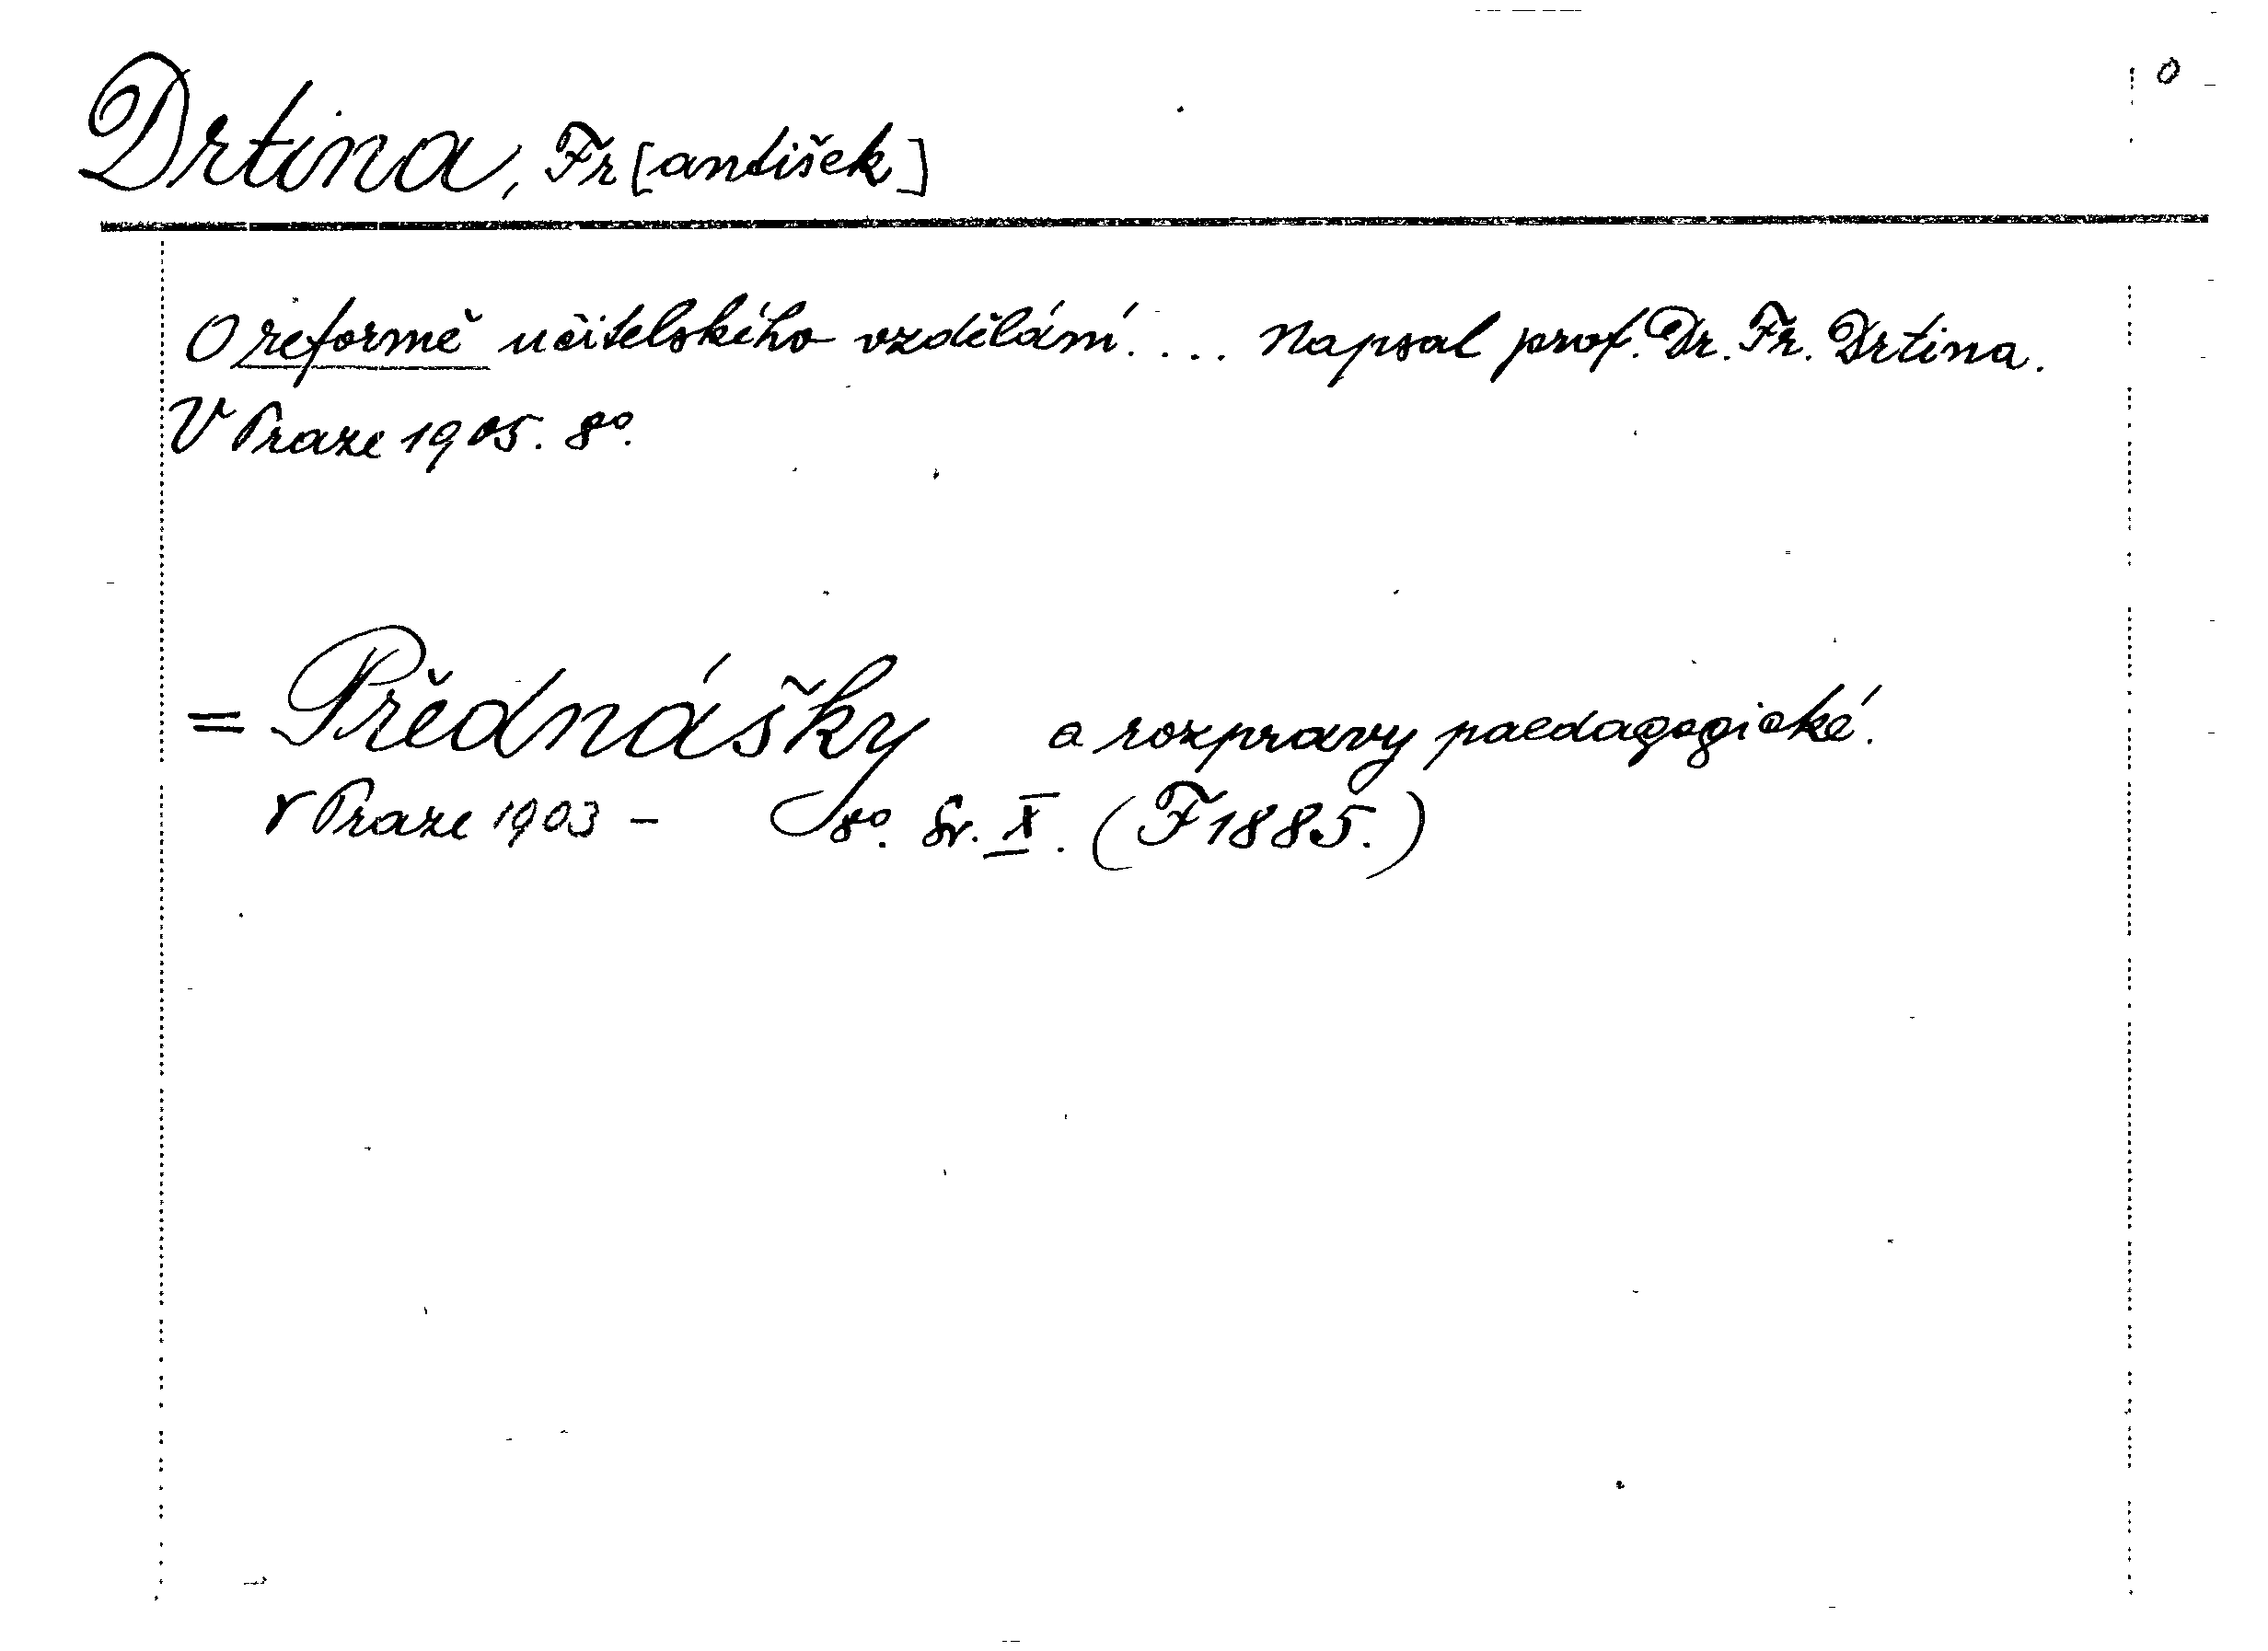 0
Drtina, Fr[antišek]
O reformě učitelského vzdělání.... Napsal prof. Dr. Fr. Drtina.
V Praze 1905. 8º.
= Přednášky a rozpravy paedagogické.
V Praze 1903 - 8º. Sv. X. (F 1885.)